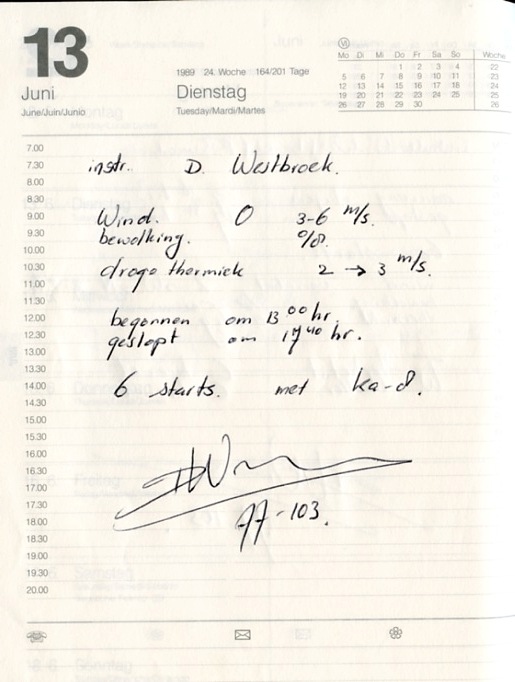 13
Juni
June/Juin/Junio
1989 24. Woche 164/201 Tage
Dienstag
Tuesday/Mardi/Martes
VI
Mo Di Mi Do Fr Sa So Woche
1 2 3 4 22
5 6 7 8 9 10 11 23
12 13 14 15 16 17 18 24
19 20 21 22 23 24 25 25
26 27 28 29 30 26
7.00
7.30 instr. D. Westbroek.
8.00
8.30
9.00 Wind. O 3-6 m/s.
9.30 bewolking. 0/8.
10.00
10.30 droge thermiek 2 → 3 m/s.
11.00
11.30
12.00 begonnen om 13 00 hr.
12.30 gestopt om 17 40 hr.
13.00
13.30
14.00 6 starts. met ka-8.
14.30
15.00
15.30
16.00
16.30
17.00
17.30
18.00 -103.
18.30
19.00
19.30
20.00